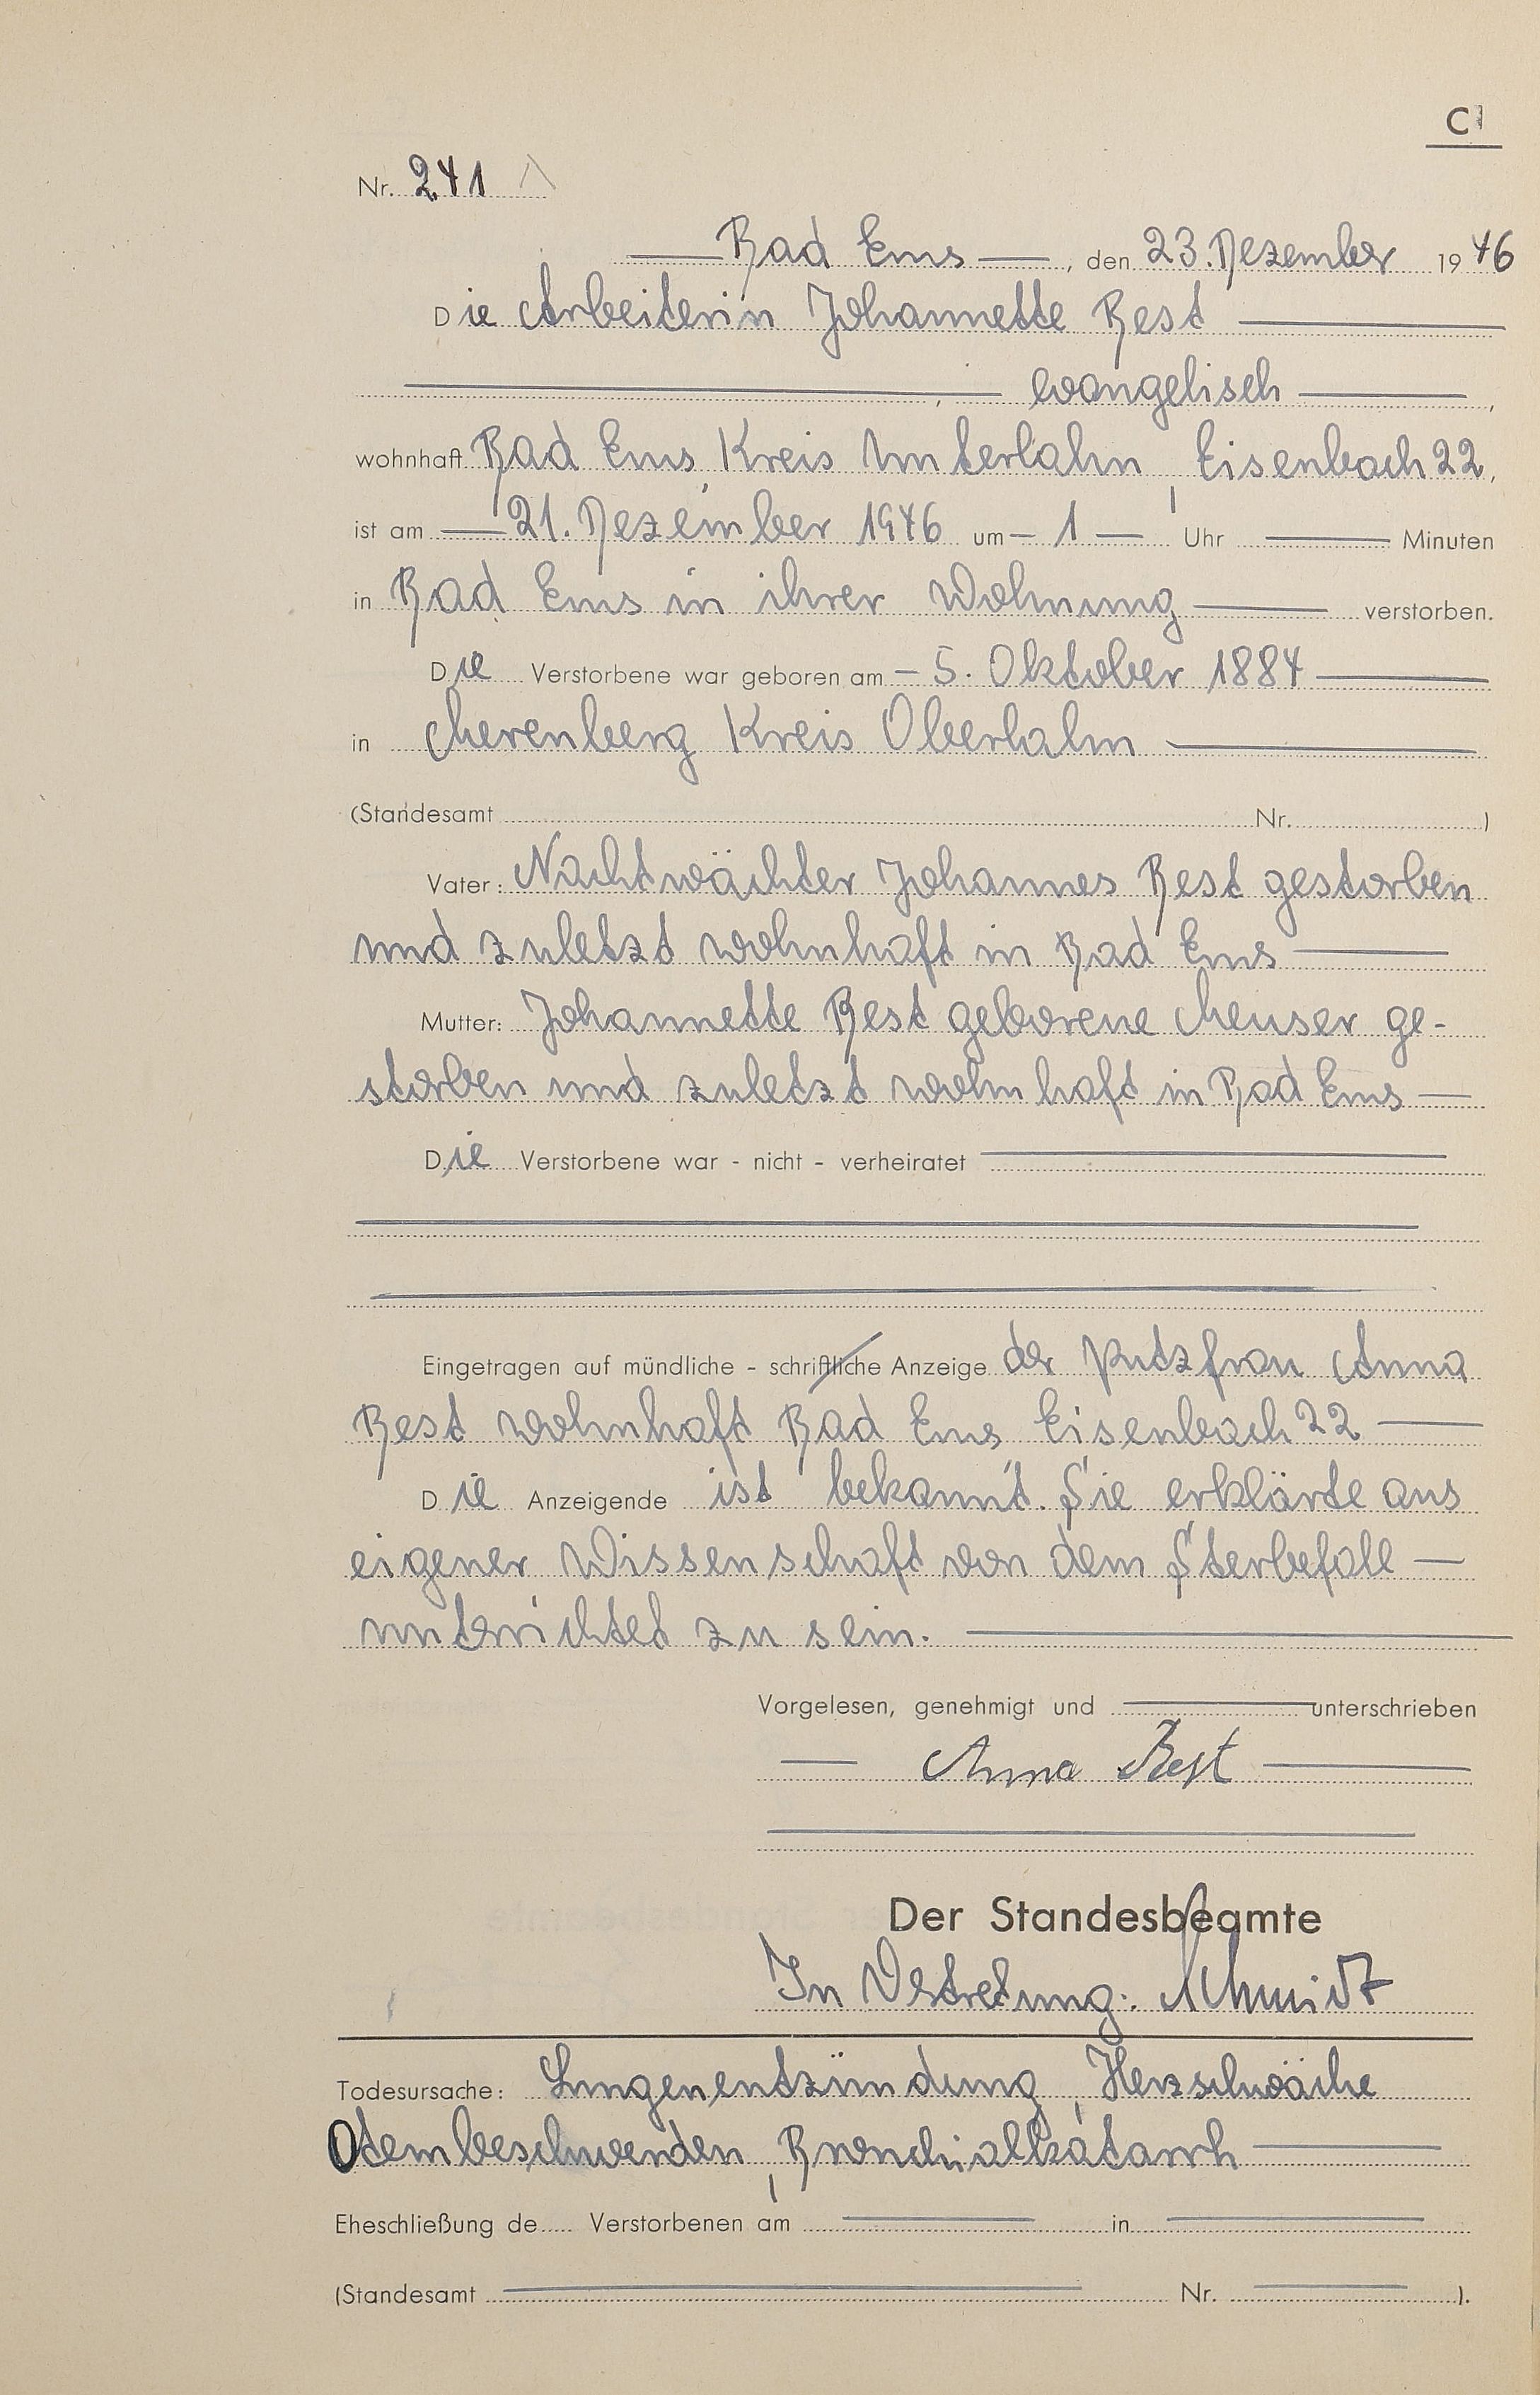 C
Nr. 241
Bad Ems, den 23. Dezember 1946
Die Arbeiterin Johannette Best
, evangelisch,
wohnhaft Bad Ems, Kreis Unterlahn, Eisenbach 22,
ist am 21. Dezember 1946 um 1 Uhr Minuten
in Bad Ems in ihrer Wohnung verstorben.
Die Verstorbene war geboren am 5. Oktober 1884
in Merenberg Kreis Oberlahn
(Standesamt Nr. )
Vater: Nachtwächter Johannes Best gestorben
und zuletzt wohnhaft in Bad Ems
Mutter: Johannette Best geborene Meuser ge-
storben und zuletzt wohnhaft in Bad Ems
Die Verstorbene war - nicht - verheiratet
Eingetragen auf mündliche - schriftliche Anzeige der Putzfrau Anna
Best wohnhaft Bad Ems, Eisenbach 22
Die Anzeigende ist bekannt. Sie erklärte aus
eigener Wissenschaft von dem Sterbefall
unterrichtet zu sein.
Vorgelesen, genehmigt und unterschrieben
Anna Best
Der Standesbeamte
In Vertretung: Schmidt
Todesursache: Lungenentzündung, Herzschwäche
Otembeschwerden, Bronchialkatarrh
Eheschließung de Verstorbenen am in
(Standesamt Nr. ).